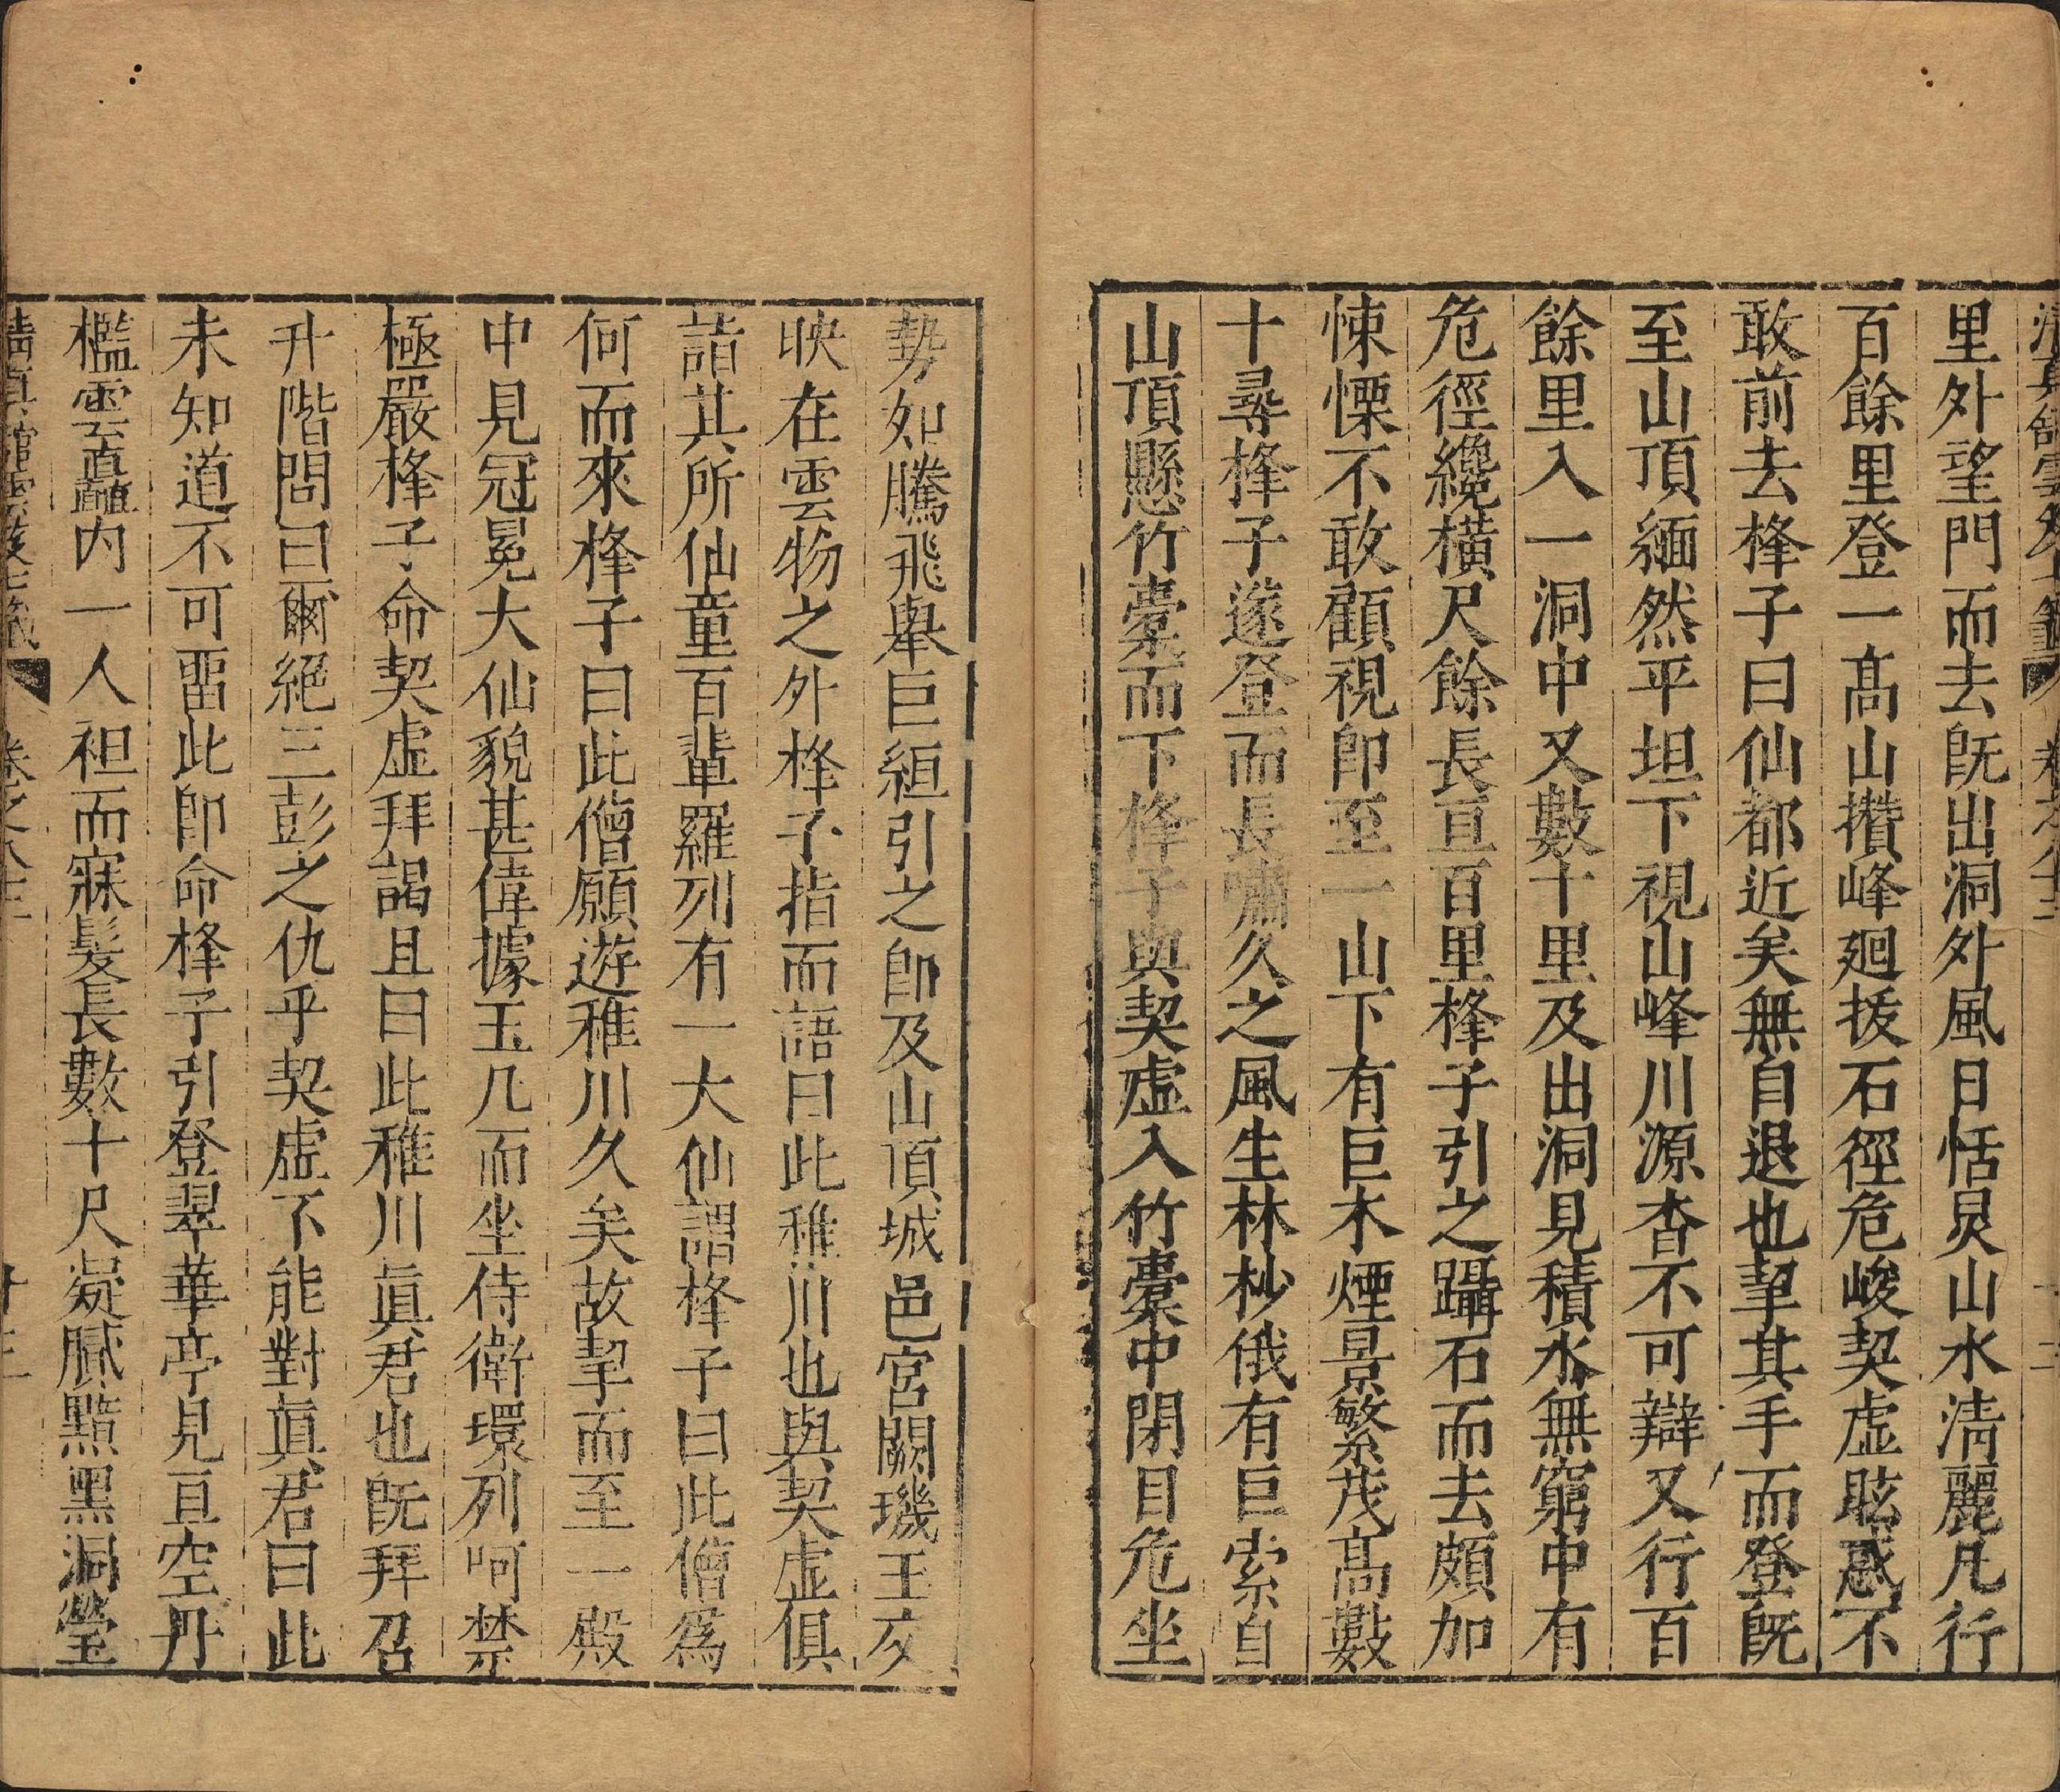 清真館雲笈七籤 卷之八十三 十二
里外望門而去既出洞外風日恬炅山水淸麗凡行
百餘里登一高山攢峰廻拔石徑危峻契虛眩惑不
敢前去㭿子曰仙都近矣無自退也挈其手而登既
至山頂緬然平坦下視山峰川源杳不可辯又行百
餘里入一洞中又數十里及出洞見積水無窮中有
危徑纔橫尺餘長亘百里㭿子引之躡石而去頗加
悚慄不敢顧視即至一山下有巨木煙景繁茂高數
十尋㭿子遂登而長嘯久之風生林杪俄有巨索自
山頂懸竹槖而下㭿子與契虛入竹槖中閉目危坐
勢如騰飛舉巨絙引之即及山頂城邑宮闕璣玉交
映在雲物之外㭿子指而語曰此稚川也與契虛俱
詣其所仙童百輩羅列有一大仙謂㭿子曰此僧爲
何而來㭿子曰此僧願遊稚川久矣故挈而至一殿
中見冠冕大仙貌甚偉據玉几而坐侍衛環列呵禁
極嚴㭿子命契虛拜謁且曰此稚川眞君也既拜召
升階問曰爾絕三彭之仇乎契虛不能對眞君曰此
未知道不可畱此卽命㭿子引登翠華亭見亘空丹
檻雲矗内一人袒而寐髮長數十尺凝膩黯黑洞瑩
淸眞館雲笈七籤 卷之八十三 十三